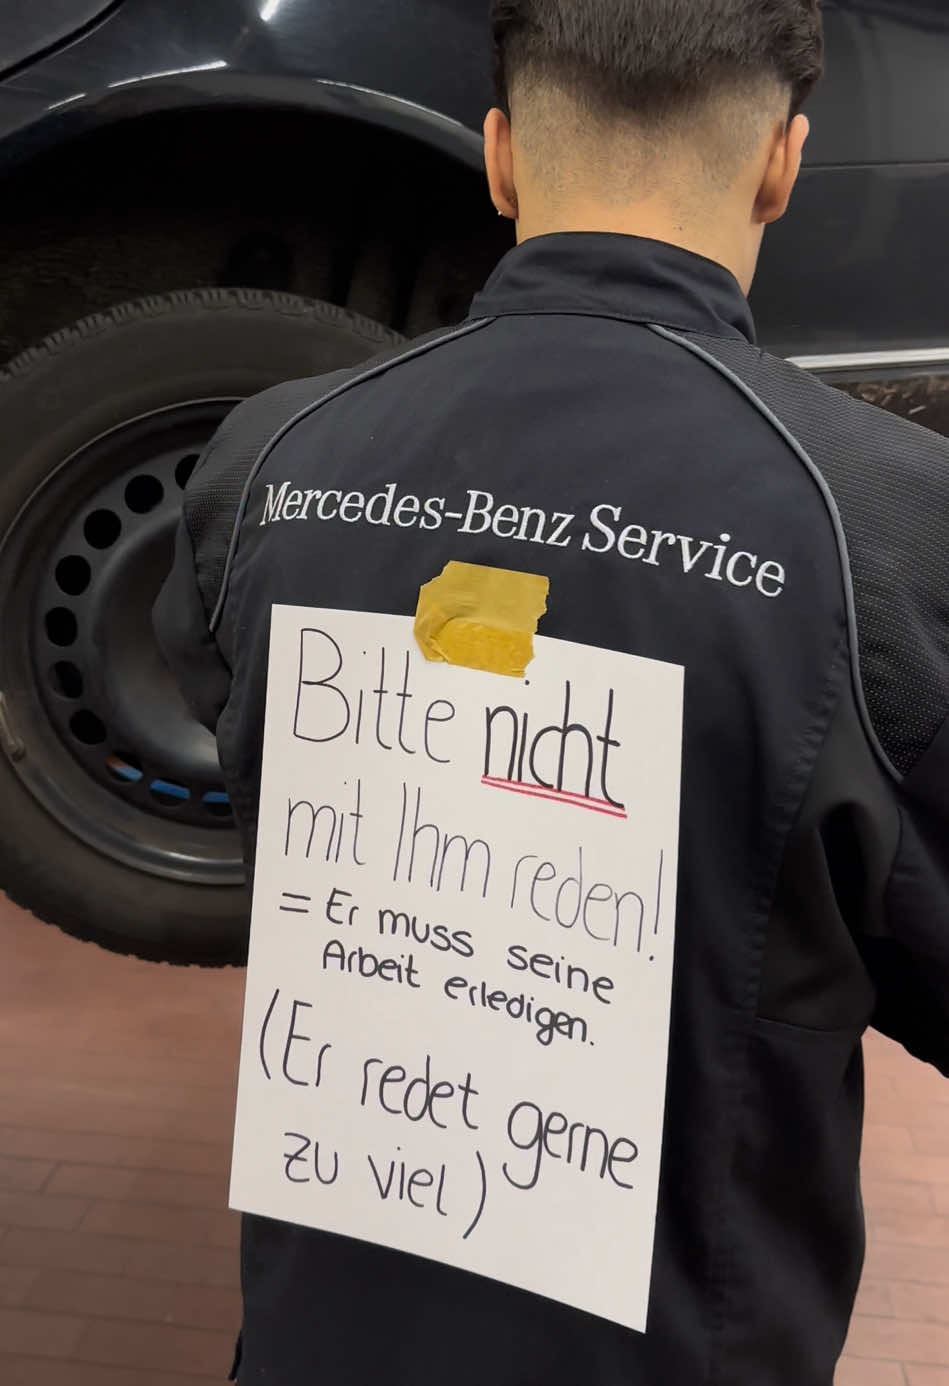 Mercedes-Benz Service
Bitte nicht
mit Ihm reden!
= Er muss seine
Arbeit erledigen.
(Er redet gerne
zu viel)